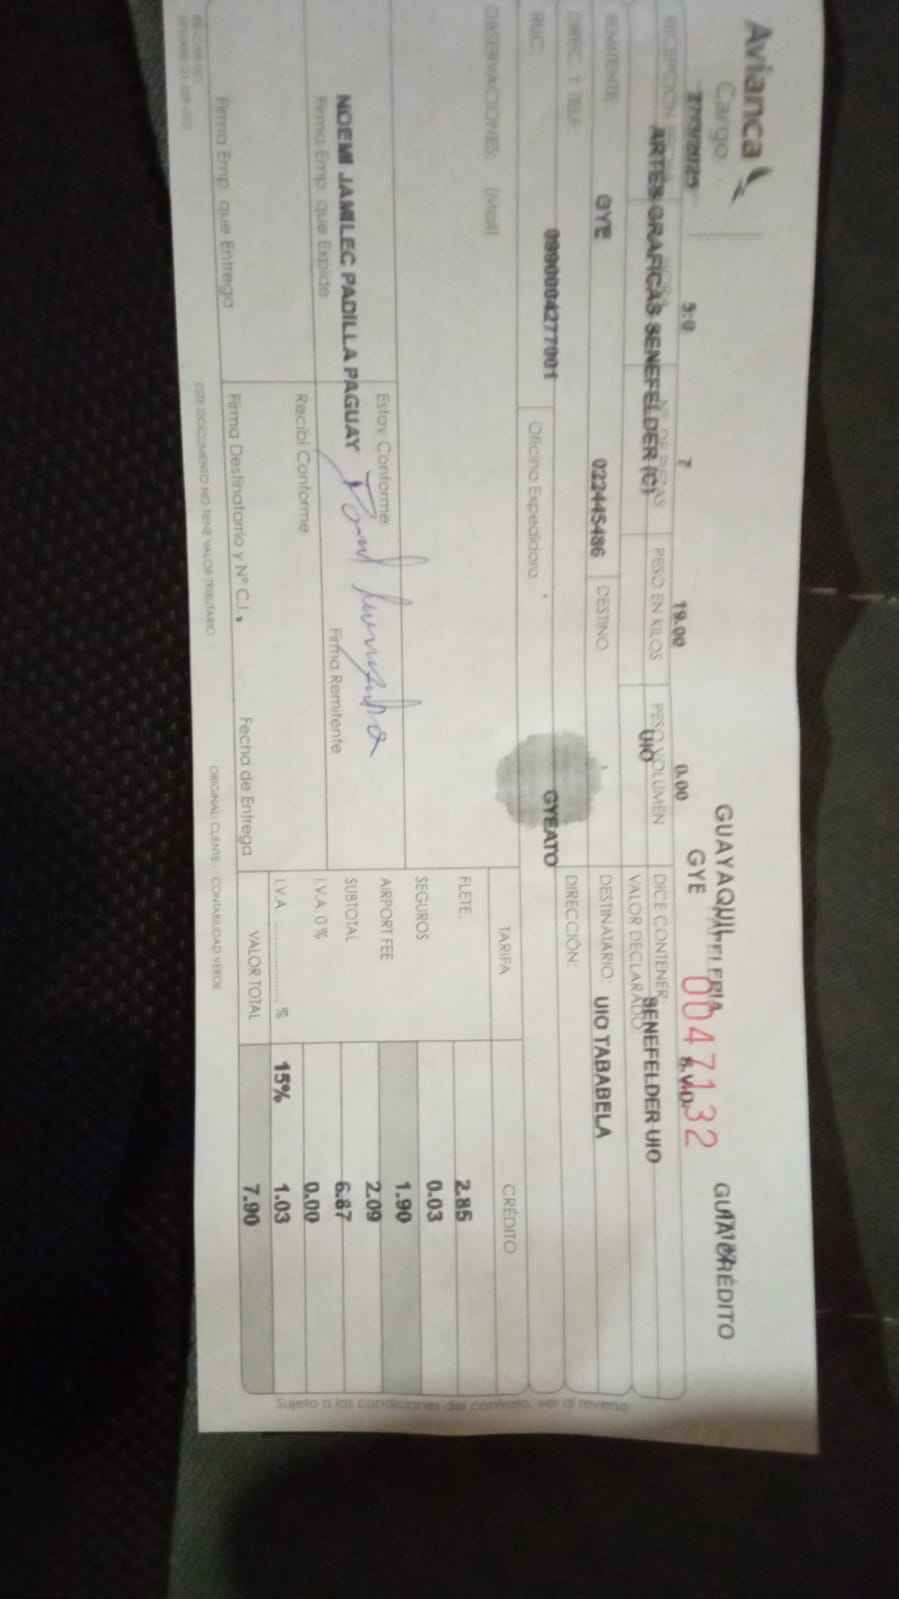 Avianca
Cargo
GUAYAQUIL
GYE
0047132
GUIA CRÉDITO
27/3/2025
5:0
7
19.00
0.00
PAPELERIA
N.V.D.
RECEPCIÓN
PESO EN KILOS
PESO VOLUMEN
DICE CONTENER:
VALOR DECLARADO
ARTES GRAFICAS SENEFELDER (C)
UIO
SENEFELDER UIO
REMITENTE
GYE
022445486
DESTINO
DESTINATARIO:
UIO TABABELA
DIREC. Y TELF.
DIRECCIÓN:
RUC:
0990004277001
Oficina Expedidora
GYEATO
OBSERVACIONES: (Mail)
TARIFA
CRÉDITO
FLETE
2.85
SEGUROS
0.03
1.90
AIRPORT FEE
2.09
SUBTOTAL
6.87
I.V.A. 0 %
0.00
I.V.A. ............ %
15%
1.03
VALOR TOTAL
7.90
Estoy Conforme
NOEMI JAMILEC PADILLA PAGUAY
Firma Emp. que Expide
Firma Remitente
Recibí Conforme
Firma Emp. que Entrega
Firma Destinatario y N° C.I.
Fecha de Entrega
ESTE DOCUMENTO NO TIENE VALOR TRIBUTARIO
ORIGINAL: CLIENTE - CONTABILIDAD: VERDE
Sujeto a las condiciones del contrato, ver al reverso